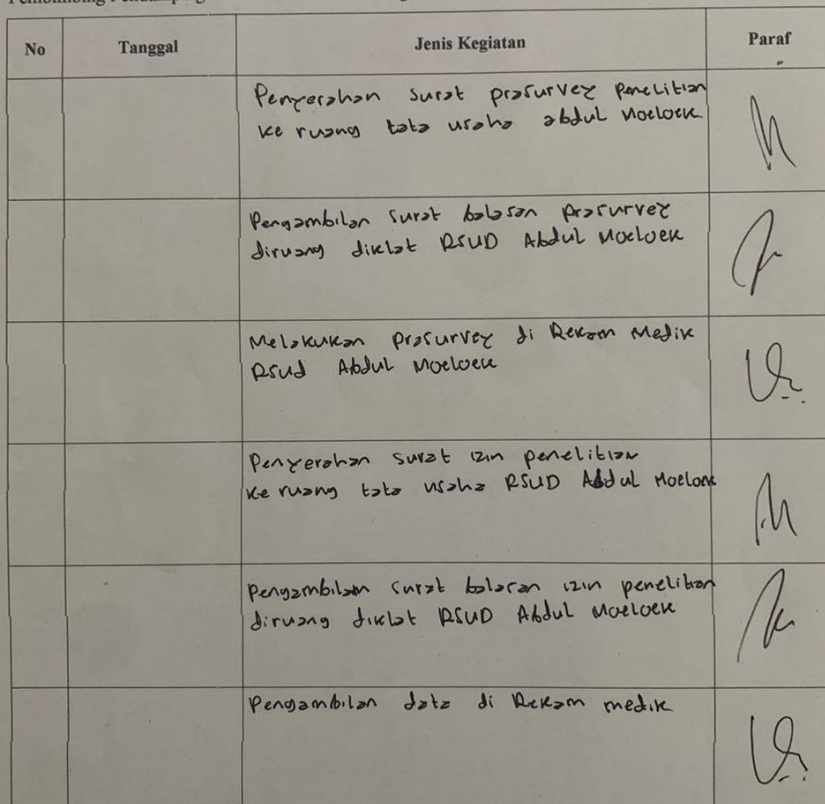 No Tanggal Jenis Kegiatan Paraf
Penyerahan surat prasurvey penelitian
ke ruang tata usaha abdul Moeloek
Pengambilan surat balasan prasurvey
diruang diklat RSUD Abdul Moeloek
Melakukan prasurvey di Rekam Medik
Rsud Abdul Moeloek
Penyerahan surat izin penelitian
ke ruang tata usaha RSUD Abdul Moeloek
Pengambilan surat balasan izin penelitian
diruang diklat RSUD Abdul Moeloek
Pengambilan data di Rekam medik